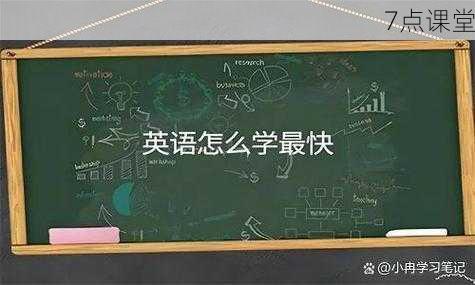 7点课堂
motivation
research
business
marketing
英语怎么学最快
workshop
business
manager
teaching
@小冉学习笔记